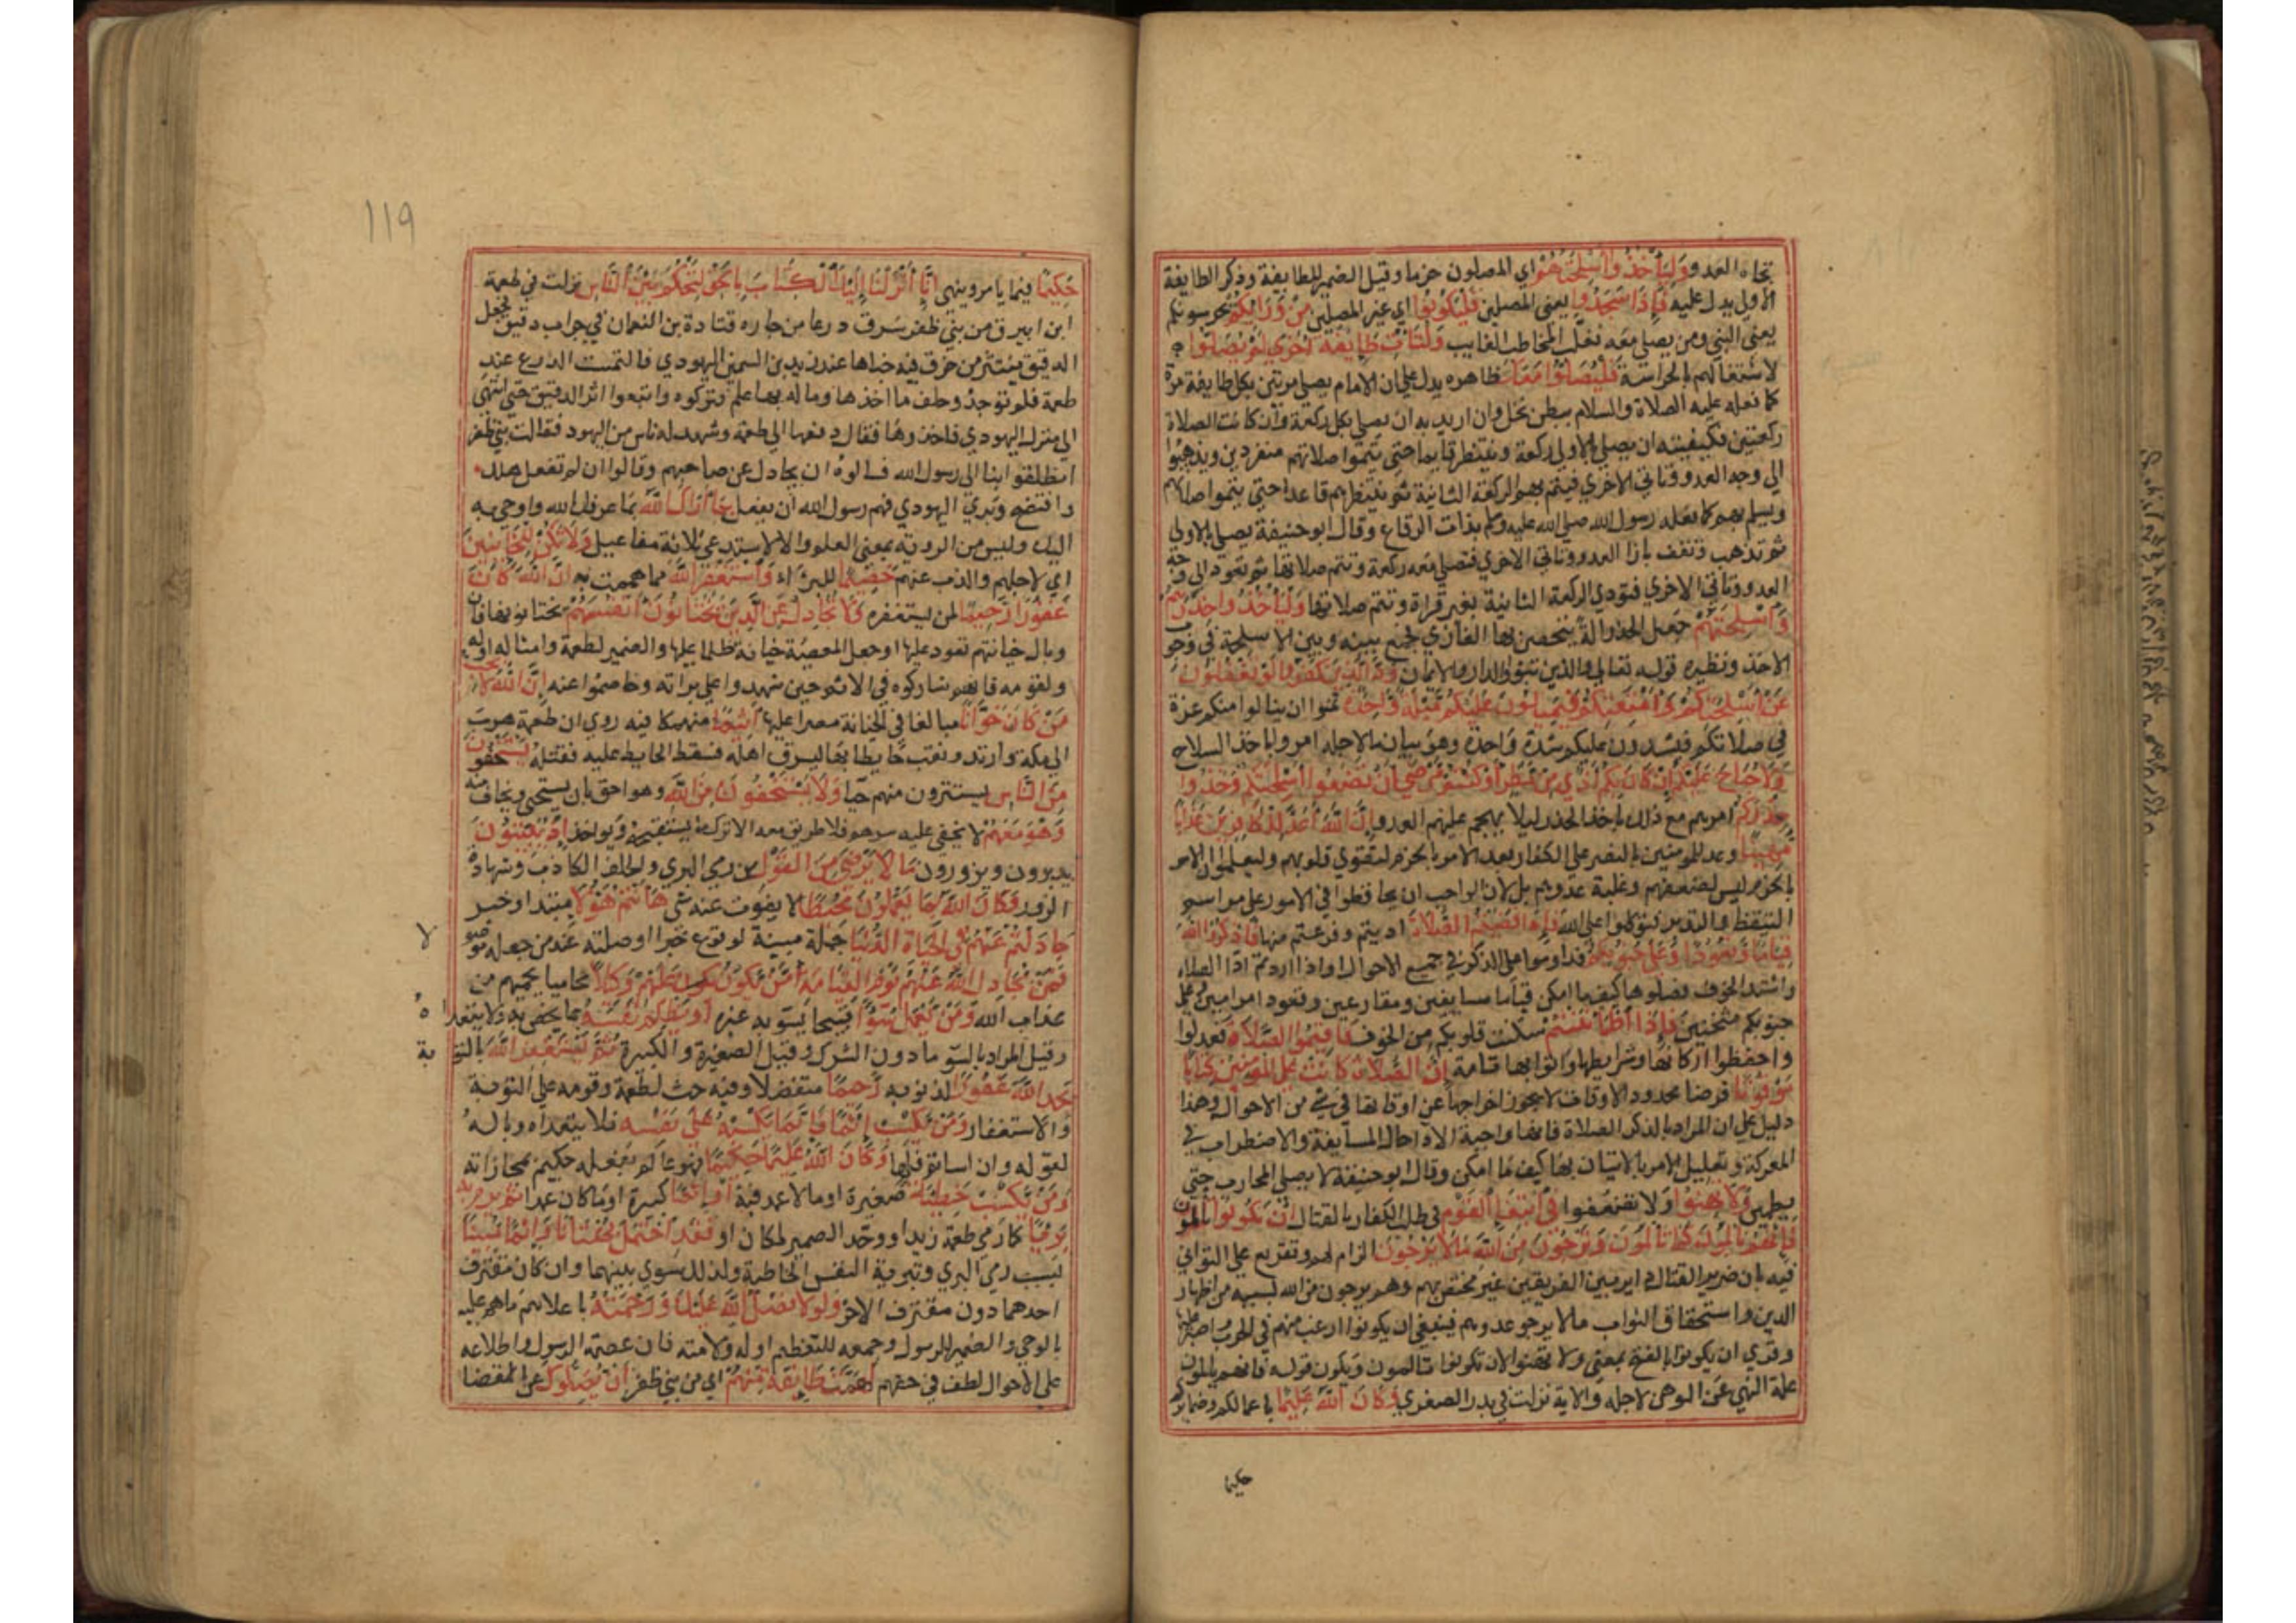 تجاه العدو وَلْيَأْخُذُوا أَسْلِحَتَهُمْ اي المصلون حزما وقيل الضمير للطايفة وذكر الطايفة
الاولى يدل عليه فَإِذَا سَجَدُوا يعنى المصلين فَلْيَكُونُوا اي غير المصلين مِنْ وَرَائِكُمْ يحرسونكم
يعنى النبي ومن يصلي معه فغلب المخاطب الغايب وَلْتَأْتِ طَايِفَةٌ أُخْرَى لَمْ يُصَلُّوا
لاشتغالهم بالحراسة فَلْيُصَلُّوا مَعَكَ ظاهره يدل على ان الامام يصلي مرتين بكل طايفة مرة
كما فعله عليه الصلاة والسلام ببطن نخل وان اريد به ان يصلي بكل ركعة وان كانت الصلاة
ركعتين فكيفيته ان يصلي بالاولى ركعة وينتظر قايما حتى يتموا صلاتهم منفردين ويذهبوا
الى وجه العدو وتاتي الاخرى فيتم بهم الركعة الثانية ثم ينتظرهم قاعدا حتى يتموا صلاتهم
ويسلم بهم كما فعله رسول الله صلى الله عليه وسلم بذات الرقاع وقال ابو حنيفة يصلي بالاولى
ثم تذهب وتقف بازا العدو وتاتي الاخرى فتصلي معه ركعة وتتم صلاتها ثم تعود الى وجه
العدو وتاتي الاخرى فتودي الركعة الثانية بغير قراة وتتم صلاتها وَلْيَأْخُذُوا حِذْرَهُمْ
وَأَسْلِحَتَهُمْ جعل الحذر الة يتحصن بها الغازي فجمع بينه وبين الاسلحة في وجوب
الاخذ ونظيره قوله تعالى والذين تبوؤا الدار والايمان وَدَّ الَّذِينَ كَفَرُوا لَوْ تَغْفُلُونَ
عَنْ أَسْلِحَتِكُمْ وَأَمْتِعَتِكُمْ فَيَمِيلُونَ عَلَيْكُمْ مَيْلَةً وَاحِدَةً تمنوا ان ينالوا منكم غزة
في صلاتكم فيشدون عليكم شدة واحدة وهو بيان ما لاجله امروا باخذ السلاح
وَلَا جُنَاحَ عَلَيْكُمْ إِنْ كَانَ بِكُمْ أَذًى مِنْ مَطَرٍ أَوْ كُنْتُمْ مَرْضَى أَنْ تَضَعُوا أَسْلِحَتَكُمْ وَخُذُوا
حِذْرَكُمْ امرهم مع ذلك باخذ الحذر ليلا يهجم عليهم العدو إِنَّ اللَّهَ أَعَدَّ لِلْكَافِرِينَ عَذَابًا
مُهِينًا وعد للمومنين بالنصر على الكفار بعد الامر بالحزم لتقوى قلوبهم وليعلموا ان الامر
بالحزم ليس لضعفهم وغلبة عدوهم بل لان الواجب ان يحافظوا في الامور على مراسم
التيقظ والتدبر فيتوكلوا على الله فَإِذَا قَضَيْتُمُ الصَّلَاةَ اديتم وفرغتم منها فَاذْكُرُوا اللَّهَ
قِيَامًا وَقُعُودًا وَعَلَى جُنُوبِكُمْ فداوموا على الذكر في جميع الاحوال او اذا اردتم ادا الصلاة
واشتد الخوف فصلوها كيف ما امكن قياما مسايفين ومقارعين وقعودا مرامين وعلى
جنوبكم مثخنين فَإِذَا اطْمَأْنَنْتُمْ سكنت قلوبكم من الخوف فَأَقِيمُوا الصَّلَاةَ فعدلوا
واحفظوا اركانها وشرايطها واتوا بها تامة إِنَّ الصَّلَاةَ كَانَتْ عَلَى الْمُؤْمِنِينَ كِتَابًا
مَوْقُوتًا فرضا محدود الاوقات لا يجوز اخراجها عن اوقاتها في شي من الاحوال وهذا
دليل على ان المراد بالذكر الصلاة فانها واجبة الادا حال المسايفة والاضطراب في
المعركة وتعليل للامر بالاتيان بها كيف ما امكن وقال ابو حنيفة لا يصلي المحارب حتى
يطمئن وَلَا تَهِنُوا ولا تضعفوا فِي ابْتِغَاءِ الْقَوْمِ في طلب الكفار بالقتال إِنْ تَكُونُوا تَأْلَمُونَ
فَإِنَّهُمْ يَأْلَمُونَ كَمَا تَأْلَمُونَ وَتَرْجُونَ مِنَ اللَّهِ مَا لَا يَرْجُونَ الزام لهم وتقريع على التواني
فيه بان ضرر القتال داير بين الفريقين غير مختص بهم وهم يرجون من الله بسببه من اظهار
الدين واستحقاق الثواب ما لا يرجو عدوهم فينبغي ان يكونوا ارغب منهم في الحرب واصبر عليها
وقرى ان يكونوا بالفتح بمعنى ولا تهنوا لان تكونوا تالمون ويكون قوله فانهم يالمون
علة النهي عن الوهن لاجله والاية نزلت في بدر الصغرى وَكَانَ اللَّهُ عَلِيمًا باعمالكم وضمايركم
حكيما
١١٩
حَكِيمًا فيما يامر وينهى إِنَّا أَنْزَلْنَا إِلَيْكَ الْكِتَابَ بِالْحَقِّ لِتَحْكُمَ بَيْنَ النَّاسِ نزلت في طعمة
ابن ابيرق من بني ظفر سرق درعا من جاره قتادة بن النعمان في جراب دقيق فجعل
الدقيق ينتثر من خرق فيه خباها عند زيد بن السمين اليهودي فالتمست الدرع عند
طعمة فلم توجد وحلف ما اخذها وما له بها علم فتركوه واتبعوا اثر الدقيق حتى انتهى
الى منزل اليهودي فاخذوها فقال دفعها الى طعمة وشهد له ناس من اليهود فقالت بني ظفر
انطلقوا بنا الى رسول الله فسالوه ان يجادل عن صاحبهم وقالوا ان لم تفعل هلك
وافتضح وبرى اليهودي فهم رسول الله ان يفعل بِمَا أَرَاكَ اللَّهُ بما عرفك الله واوحى به
اليك وليس من الروية بمعنى العلم والا لاستدعى ثلاثة مفاعيل وَلَا تَكُنْ لِلْخَائِنِينَ
اي لاجلهم والذب عنهم خَصِيمًا للبرءاء وَاسْتَغْفِرِ اللَّهَ مما هممت به إِنَّ اللَّهَ كَانَ
غَفُورًا رَحِيمًا لمن يستغفره وَلَا تُجَادِلْ عَنِ الَّذِينَ يَخْتَانُونَ أَنْفُسَهُمْ يخونونها فان
وبال خيانتهم تعود عليها او جعل المعصية خيانة ظلما عليها والضمير لطعمة وامثاله او له
ولقومه فانهم شاركوه في الاثم حين شهدوا على براته وخاصموا عنه إِنَّ اللَّهَ لَا يُحِبُّ
مَنْ كَانَ خَوَّانًا مبالغا في الخيانة مصرا عليها أَثِيمًا منهمكا فيه روي ان طعمة هرب
الى مكة وارتد ونقب حايطا بها ليسرق اهله فسقط الحايط عليه فقتله يَسْتَخْفُونَ
مِنَ النَّاسِ يستترون منهم حيا وَلَا يَسْتَخْفُونَ مِنَ اللَّهِ وهو احق بان يستحيى ويخاف منه
وَهُوَ مَعَهُمْ لا يخفى عليه سرهم فلا طريق معه الا ترك ما يستقبحه ويواخذ إِذْ يُبَيِّتُونَ
يدبرون ويزورون مَا لَا يَرْضَى مِنَ الْقَوْلِ من رمي البري والحلف الكاذب وشهادة
الزور وَكَانَ اللَّهُ بِمَا يَعْمَلُونَ مُحِيطًا لا يفوت عنه شي هَا أَنْتُمْ هَؤُلَاءِ مبتدا وخبر
جَادَلْتُمْ عَنْهُمْ فِي الْحَيَاةِ الدُّنْيَا جملة مبينة لوقوع خبرا او صلته عند من جعله موصو
لا
فَمَنْ يُجَادِلُ اللَّهَ عَنْهُمْ يَوْمَ الْقِيَامَةِ أَمْ مَنْ يَكُونُ عَلَيْهِمْ وَكِيلًا محاميا يحميهم من
عذاب الله وَمَنْ يَعْمَلْ سُوءًا قبيحا يسو به غيره أَوْ يَظْلِمْ نَفْسَهُ بما يختص به ولا يتعدا
ه
وقيل المراد بالسو ما دون الشرك وقيل الصغيرة والكبيرة ثُمَّ يَسْتَغْفِرِ اللَّهَ بالتو
بة
يَجِدِ اللَّهَ غَفُورًا لذنوبه رَحِيمًا متفضلا وفيه حث لطعمة وقومه على التوبة
والاستغفار وَمَنْ يَكْسِبْ إِثْمًا فَإِنَّمَا يَكْسِبُهُ عَلَى نَفْسِهِ فلا يتعداه وباله
لقوله وان اساتم فلها وَكَانَ اللَّهُ عَلِيمًا حَكِيمًا فهو عالم بفعله حكيم بمجازاته
وَمَنْ يَكْسِبْ خَطِيئَةً صغيرة او ما لا عمد فيه أَوْ إِثْمًا كبيرة او ما كان عمدا ثُمَّ يَرْمِ بِهِ
بَرِيئًا كما رمى طعمة زيدا ووحد الضمير لمكان او فَقَدِ احْتَمَلَ بُهْتَانًا وَإِثْمًا مُبِينًا
بسبب رمي البري وتبرية النفس الخاطية ولذلك سوى بينهما وان كان مقترف
احدهما دون مقترف الاخر وَلَوْلَا فَضْلُ اللَّهِ عَلَيْكَ وَرَحْمَتُهُ باعلامهم ما هم عليه
بالوحي والضمير للرسول وجمعه للتعظيم او له ولامته فان عصمة الرسول واطلاعه
على الاحوال لطف في حقهم لَهَمَّتْ طَايِفَةٌ مِنْهُمْ اي من بني ظفر أَنْ يُضِلُّوكَ عن القضا